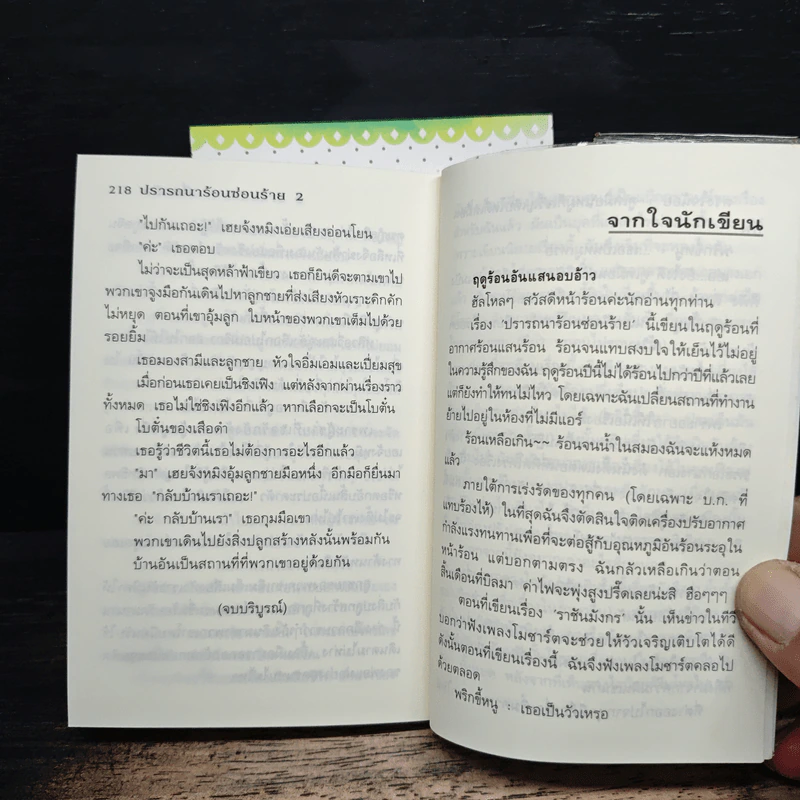 218 ปรารถนาร้อนซ่อนร้าย 2
"ไปกันเถอะ!" เฮยจ้งหมิงเอ่ยเสียงอ่อนโยน
"ค่ะ" เธอตอบ
ไม่ว่าจะเป็นสุดหล้าฟ้าเขียว เธอก็ยินดีจะตามเขาไป
พวกเขาจูงมือกันเดินไปหาลูกชายที่ส่งเสียงหัวเราะคิกคัก
ไม่หยุด ตอนที่เขาอุ้มลูก ใบหน้าของพวกเขาเต็มไปด้วย
รอยยิ้ม
เธอมองสามีและลูกชาย หัวใจอิ่มเอมและเปี่ยมสุข
เมื่อก่อนเธอเคยเป็นชิงเฟิง แต่หลังจากผ่านเรื่องราว
ทั้งหมด เธอไม่ใช่ชิงเฟิงอีกแล้ว หากเลือกจะเป็นโบตั๋น
โบตั๋นของเสือดำ
เธอรู้ว่าชีวิตนี้เธอไม่ต้องการอะไรอีกแล้ว
"มา" เฮยจ้งหมิงอุ้มลูกชายมือหนึ่ง อีกมือก็ยื่นมา
ทางเธอ "กลับบ้านเราเถอะ!"
"ค่ะ กลับบ้านเรา" เธอกุมมือเขา
พวกเขาเดินไปยังสิ่งปลูกสร้างหลังนั้นพร้อมกัน
บ้านอันเป็นสถานที่ที่พวกเขาอยู่ด้วยกัน
(จบบริบูรณ์)
จากใจนักเขียน
ฤดูร้อนอันแสนอบอ้าว
ฮัลโหลๆ สวัสดีหน้าร้อนค่ะนักอ่านทุกท่าน
เรื่อง 'ปรารถนาร้อนซ่อนร้าย' นี้เขียนในฤดูร้อนที่
อากาศร้อนแสนร้อน ร้อนจนแทบสงบใจให้เย็นไว้ไม่อยู่
ในความรู้สึกของฉัน ฤดูร้อนปีนี้ไม่ได้ร้อนไปกว่าปีที่แล้วเลย
แต่ก็ยังทำให้ทนไม่ไหว โดยเฉพาะฉันเปลี่ยนสถานที่ทำงาน
ย้ายไปอยู่ในห้องที่ไม่มีแอร์
ร้อนเหลือเกิน~~ ร้อนจนน้ำในสมองฉันจะแห้งหมด
แล้ว
ภายใต้การเร่งรัดของทุกคน (โดยเฉพาะ บ.ก. ที่
แทบร้องไห้) ในที่สุดฉันจึงตัดสินใจติดเครื่องปรับอากาศ
กำลังแรงทนทานเพื่อที่จะต่อสู้กับอุณหภูมิอันร้อนระอุใน
หน้าร้อน แต่บอกตามตรง ฉันกลัวเหลือเกินว่าตอน
สิ้นเดือนที่บิลมา ค่าไฟจะพุ่งสูงปรี๊ดเลยน่ะสิ ฮือๆๆๆ
ตอนที่เขียนเรื่อง 'ราชันมังกร' นั้น เห็นข่าวในทีวี
บอกว่าฟังเพลงโมซาร์ตจะช่วยให้วัวเจริญเติบโตได้ดี
ดังนั้นตอนที่เขียนเรื่องนี้ ฉันจึงฟังเพลงโมซาร์ตคลอไป
ด้วยตลอด
พริกขี้หนู : เธอเป็นวัวเหรอ